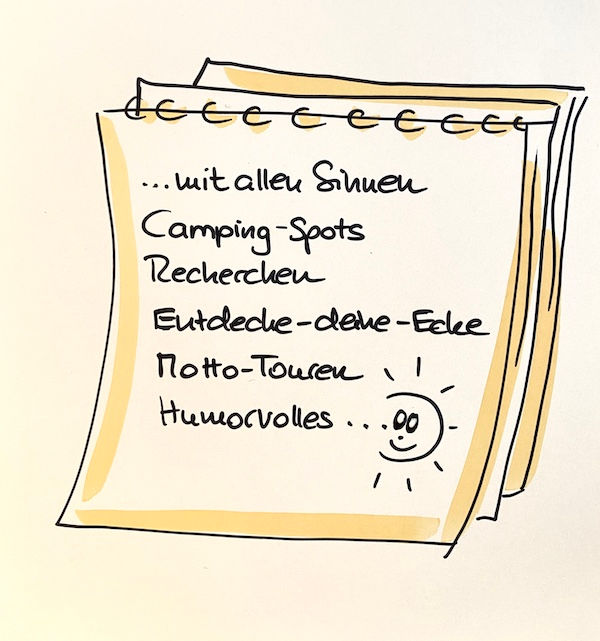 ...mit allen Sinnen
Camping-Spots
Recherchen
Entdecke-deine-Ecke
Motto-Touren
Humorvolles ...